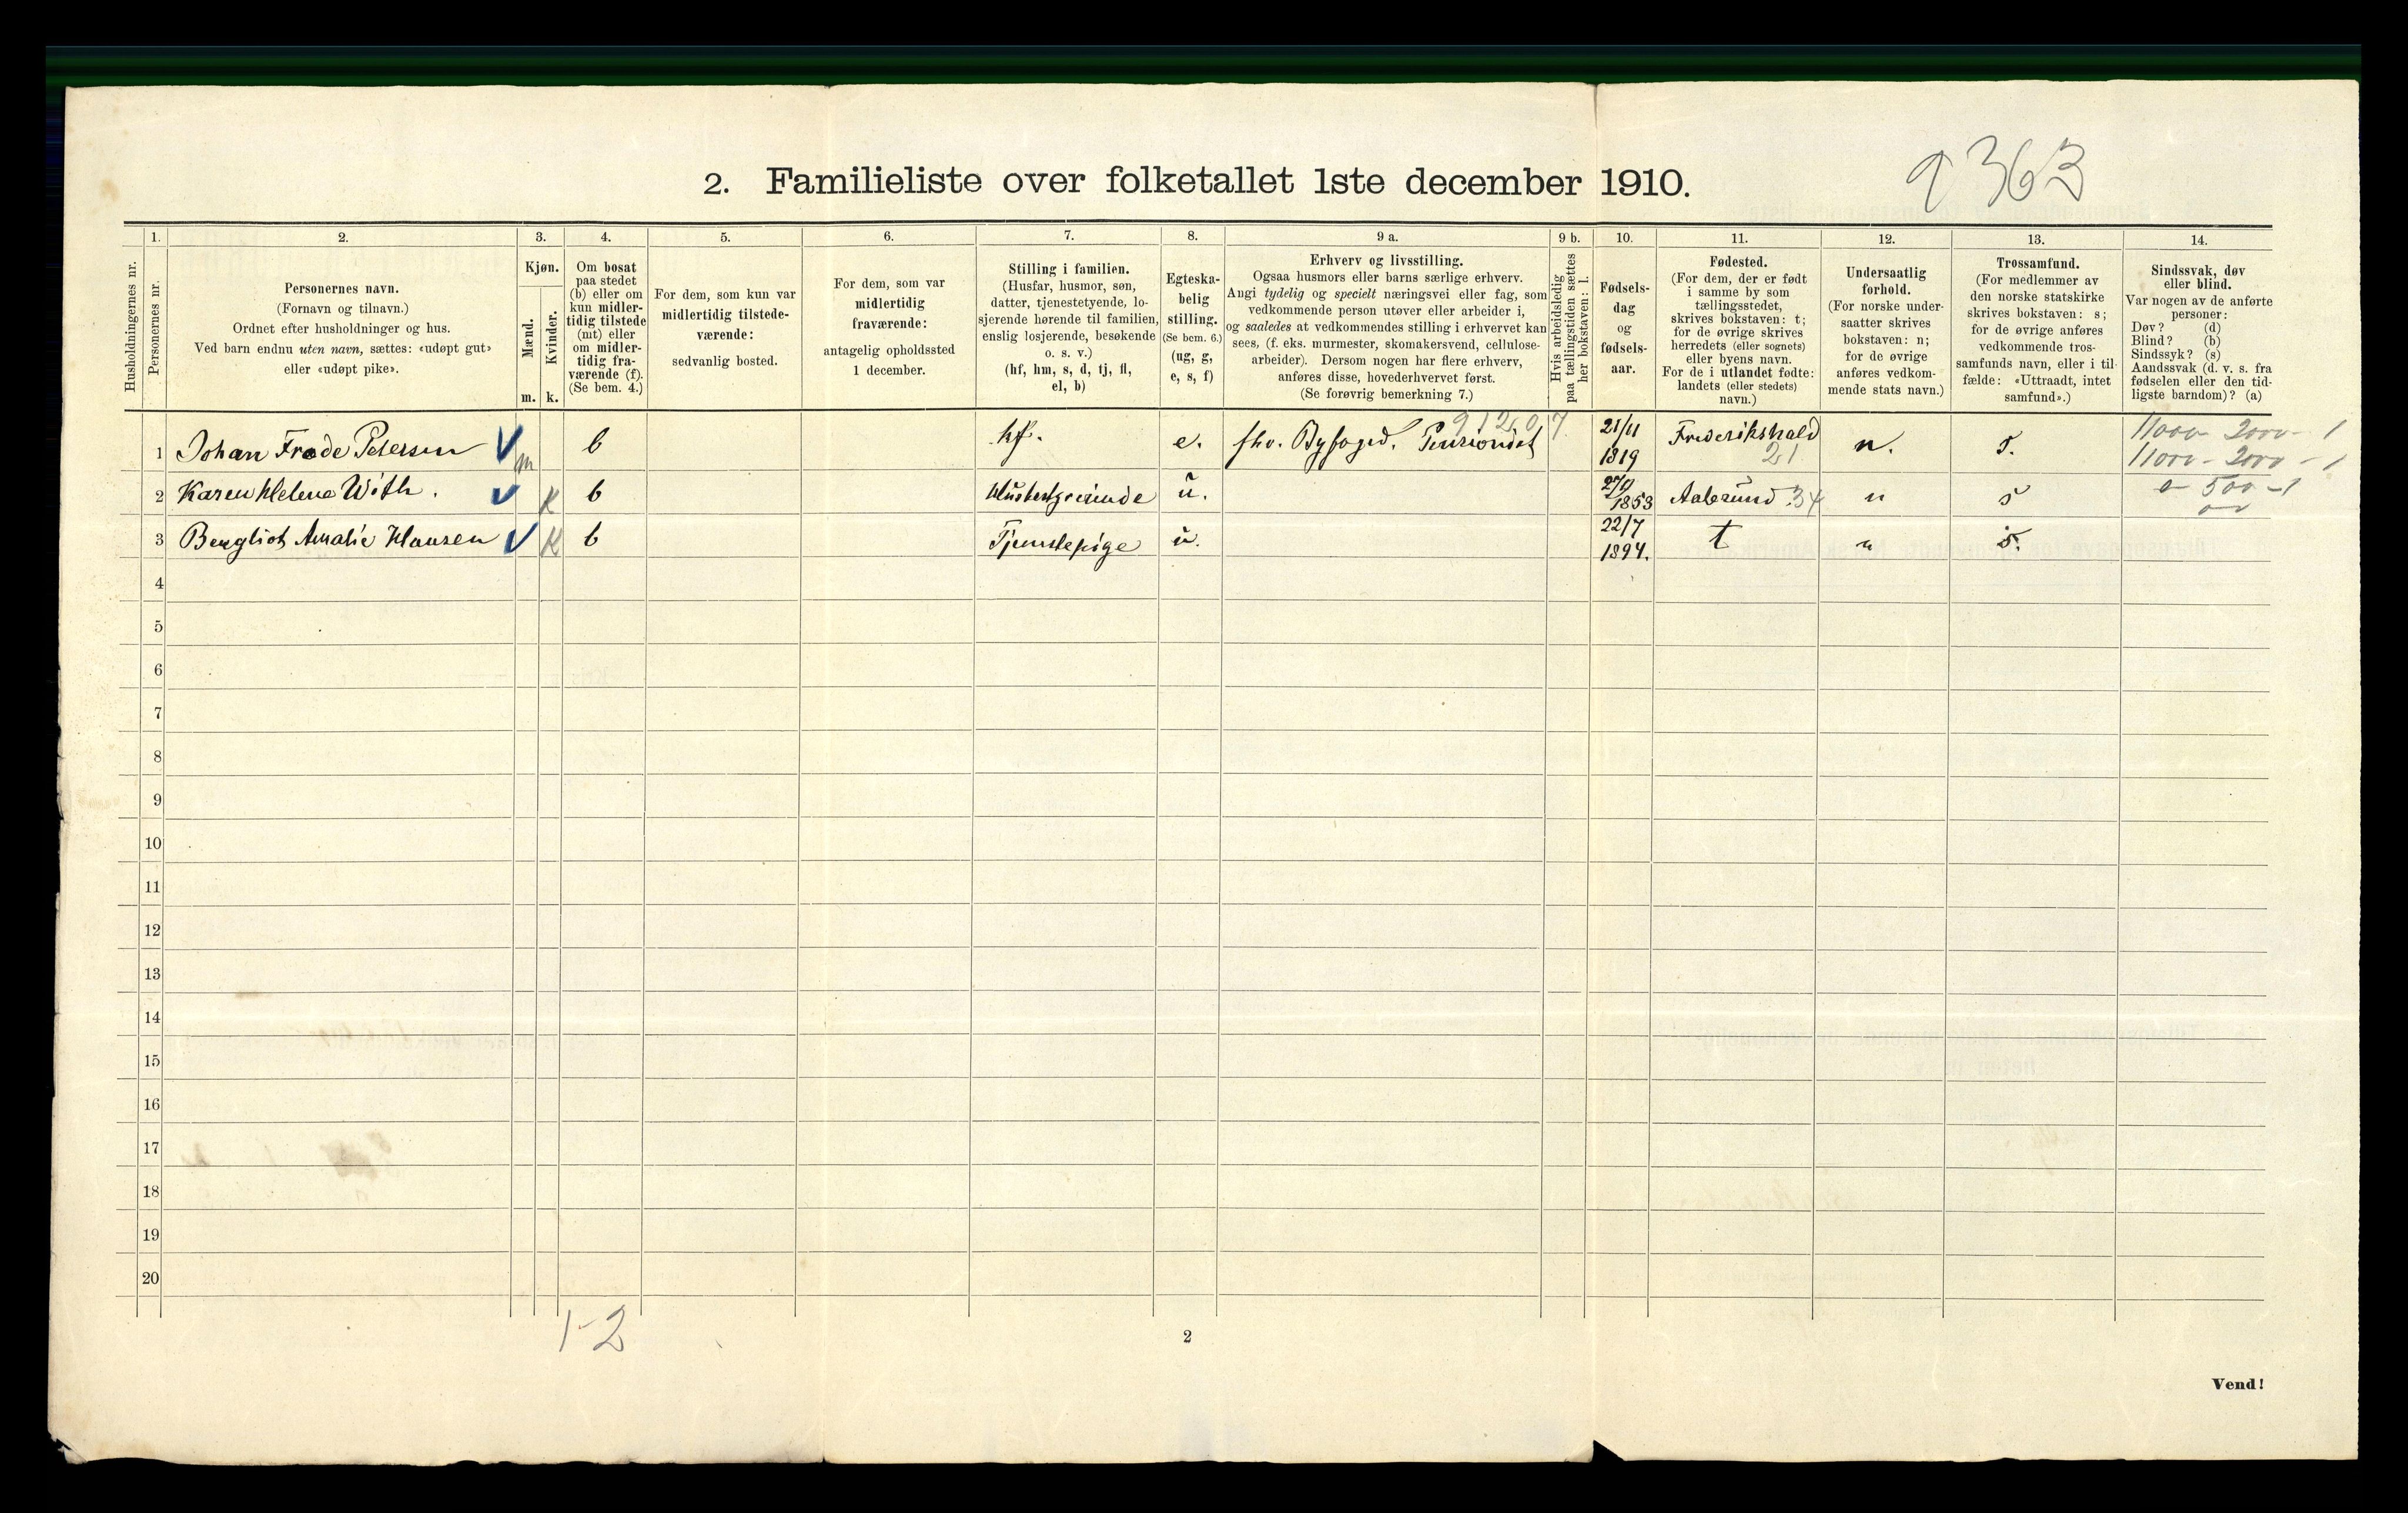 9363
2. Familieliste over folketallet 1ste december 1910.
Husholdningernes nr.
1.
Personernes nr.
2.
Personernes navn.
(Fornavn og tilnavn.)
Ordnet efter husholdninger og hus.
Ved barn endnu uten navn, sættes: «udøpt gut»
eller «udøpt pike».
3.
Kjøn.
Mænd.
Kvinder.
m. k.
4.
Om bosat
paa stedet
(b) eller om
kun midler-
tidig tilstede
(mt) eller
om midler-
tidig fra-
værende (f).
(Se bem. 4.)
5.
For dem, som kun var
midlertidig tilstede-
værende:
sedvanlig bosted.
6.
For dem, som var
midlertidig
fraværende:
antagelig opholdssted
1 december.
7.
Stilling i familien.
(Husfar, husmor, søn,
datter, tjenestetyende, lo-
sjerende hørende til familien,
enslig losjerende, besøkende
o. s. v.)
(hf, hm, s, d, tj, fl,
el, b)
8.
Egteska-
belig
stilling.
(Se bem. 6.)
(ug, g,
e, s, f)
9 a.
Erhverv og livsstilling.
Ogsaa husmors eller barns særlige erhverv.
Angi tydelig og specielt næringsvei eller fag, som
vedkommende person utøver eller arbeider i,
og saaledes at vedkommendes stilling i erhvervet kan
sees, (f. eks. murmester, skomakersvend, cellulose-
arbeider). Dersom nogen har flere erhverv,
anføres disse, hovederhvervet først.
(Se forøvrig bemerkning 7.)
9 b.
Hvis arbeidsledig
paa tællingstiden sættes
her bokstaven: l.
10.
Fødsels-
dag
og
fødsels-
aar.
11.
Fødested.
(For dem, der er født
i samme by som
tællingsstedet,
skrives bokstaven: t;
for de øvrige skrives
herredets (eller sognets)
eller byens navn.
For de i utlandet fødte:
landets (eller stedets)
navn.)
12.
Undersaatlig
forhold.
(For norske under-
saatter skrives
bokstaven: n;
for de øvrige
anføres vedkom-
mende stats navn.)
13.
Trossamfund.
(For medlemmer av
den norske statskirke
skrives bokstaven: s;
for de øvrige anføres
vedkommende tros-
samfunds navn, eller i til-
fælde: «Uttraadt, intet
samfund».)
14.
Sindssvak, døv
eller blind.
Var nogen av de anførte
personer:
Døv? (d)
Blind? (b)
Sindssyk? (s)
Aandssvak (d. v. s. fra
fødselen eller den tid-
ligste barndom)? (a)
1 Johan Frode Petersen m b hf. e. fhv. Byfoged. Pensionist 21/11 1819 Frederikshald 21 n. s. 11000 - 2000 - 1
11000 - 2000 - 1
2 Karen Helene With. K b Husbestyrerinde u. 1853 Aalesund 34 n s 500 - 1
3 Bergliot Amalie Hansen K b Tjenstepige u. 22/7 1894. t n s.
4
5
6
7
8
9
10
11
12
13
14
15
16
17
18
19
20
1-2
2
Vend!